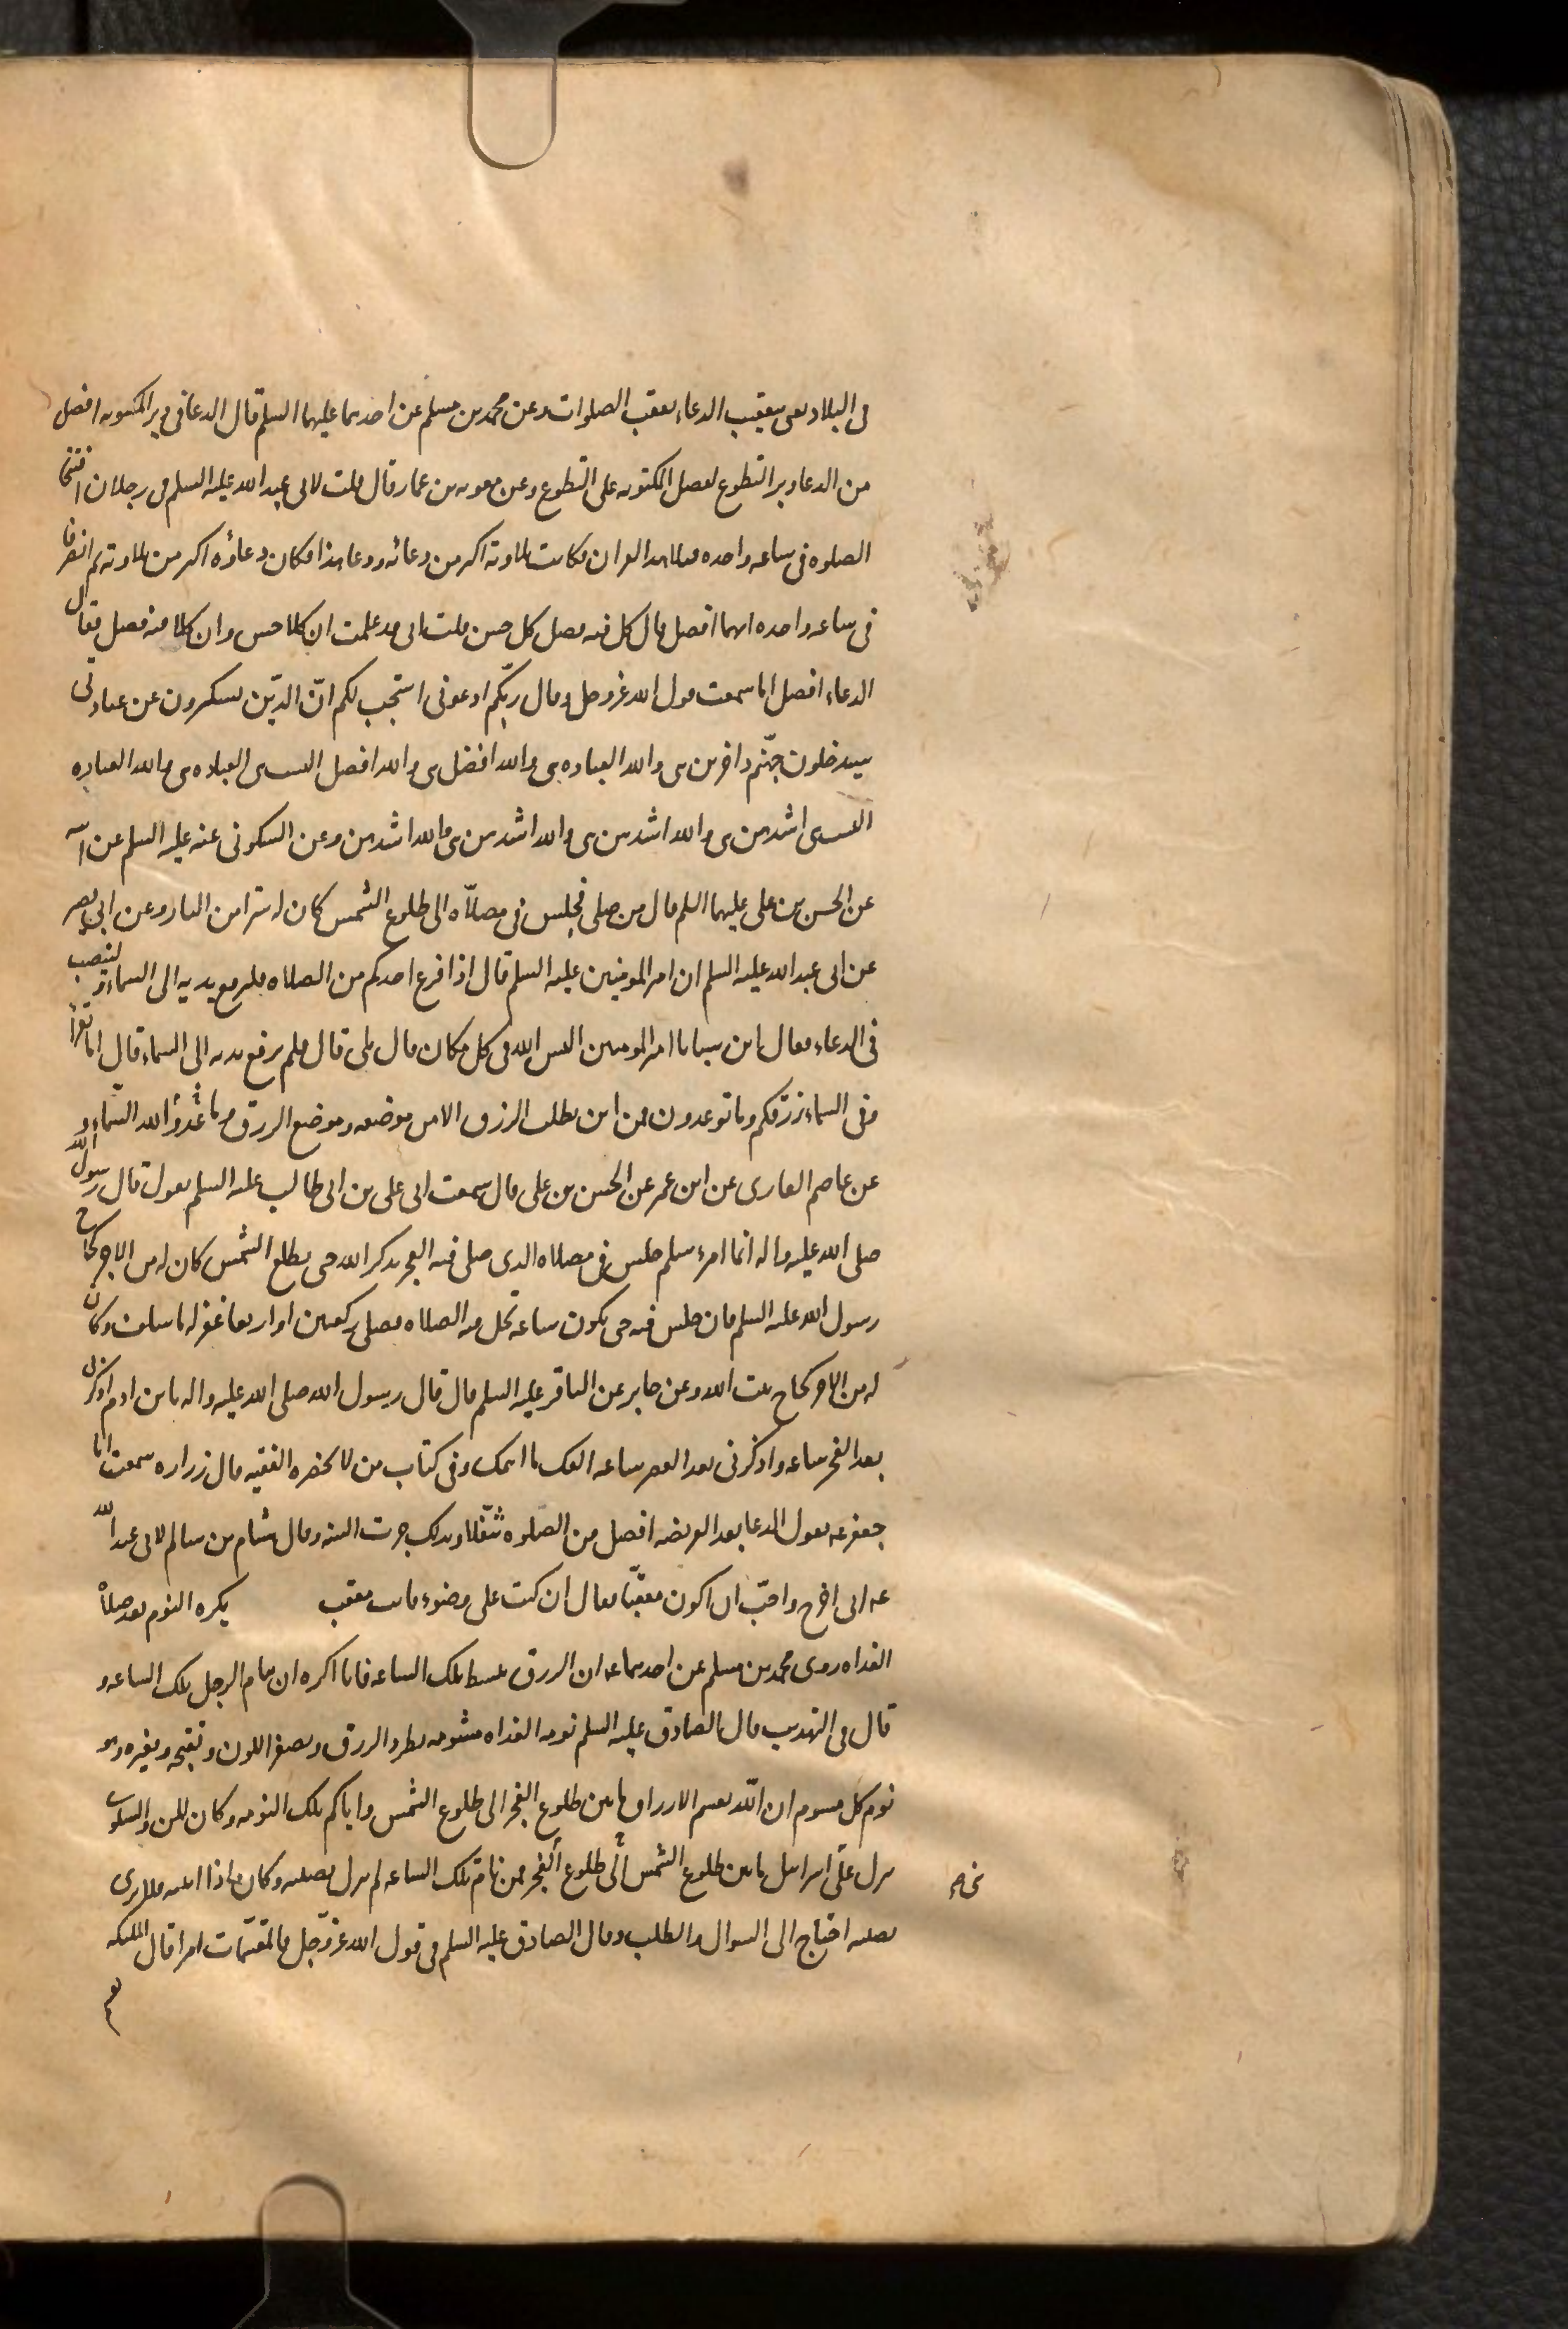 فى البلاد يعنى بتعقيب الدعاء بعقب الصلوات وعن محمد بن مسلم عن احدهما عليهما السلم قال الدعا فى دبر المكتوبه افضل
من الدعا دبر التطوع كفضل المكتوبه على التطوع وعن معويه بن عمار قال قلت لابى عبد الله عليه السلم فى رجلان افتتحا
الصلوه فى ساعه واحده فتلا هذا القران فكانت تلاوته اكثر من دعائه ودعا هذا فكان دعاؤه اكثر من تلاوته ثم انصرفا
فى ساعه واحده ايهما افضل قال كل فيه فضل كل حسن قلت انى قد علمت ان كلا حسن وان كلا فيه فضل فقال
الدعاء افضل اما سمعت قول الله عز وجل وقال ربّكم ادعونى استجب لكم انّ الذين يستكبرون عن عبادتى
سيدخلون جهنّم داخرين هى والله العباده هى والله افضل هى والله افضل اليست هى العباده هى والله العباده
اليست هى اشدهن هى والله اشدهن هى والله اشدهن هى والله اشدهن وعن السكونى عنه عليه السلم عن ابيه
عن الحسن بن على عليهما السلم قال من صلى فجلس فى مصلاّه الى طلوع الشمس كان له سترا من النار وعن ابى بصير
عن ابى عبد الله عليه السلم ان امير المومنين عليه السلم قال اذا فرغ احدكم من الصلاه فليرفع يديه الى السماء ولينصب
فى الدعاء فقال ابن سبا يا امير المومنين اليس الله فى كل مكان قال بلى قال فلم يرفع يديه الى السماء قال اما تقرأ
وفى السماء رزقكم وما توعدون فمن اين يطلب الرزق الا من موضعه وموضع الرزق وما وعد الله السّماء و
عن عاصم القارى عن ابن عمر عن الحسن بن على قال سمعت ابى على بن ابى طالب عليه السلم يقول قال رسول الله
صلى الله عليه واله ايما امرء مسلم جلس فى مصلاه الذى صلى فيه الفجر يذكر الله حتى يطلع الشمس كان له من الاجر كحاج
رسول الله عليه السلم فان جلس فيه حتى يكون ساعه تحل فيه الصلاه فصلى ركعتين او اربعا غفر له ما سلف وكان
له من الاجر كحاج بيت الله وعن جابر عن الباقر عليه السلم قال قال رسول الله صلى الله عليه واله يا بن ادم اذكرنى
بعد الفجر ساعه واذكرنى بعد العصر ساعه اكفك ما اهمك وفى كتاب من لا يحضره الفقيه قال زراره سمعت ابا
جعفر عه يقول الدعا بعد الفريضه افضل من الصلوه تنفّلا وبذلك جرت السنه وقال هشام بن سالم لابى عبد الله
عه انى اخرج واحبّ ان اكون معقّبا فقال ان كنت على وضوء فانت معقب يكره النوم بعد صلاة
الغداه روى محمد بن مسلم عن احدهما عه ان الرزق يبسط تلك الساعه فانا اكره ان ينام الرجل تلك الساعه و
قال فى التهذيب قال الصادق عليه السلم نومه الغداه مشومه يطرد الرزق ويصفر اللون وتقبحه ويغيره وهو
نوم كل مشوم ان اللّه يقسم الارزاق ما بين طلوع الفجر الى طلوع الشمس واياكم تلك النومه وكان المن والسلوى
ينزل على اسرايل ما بين طلوع الشمس الى طلوع الفجر فمن نام تلك الساعه لم ينزل نصيبه وكان اذا انتبه فلا يرى
نصيبه احتاج الى السوال والطلب وقال الصادق عليه السلم فى قول الله عزّ وجل فالمقسّمات امرا قال الملئكه